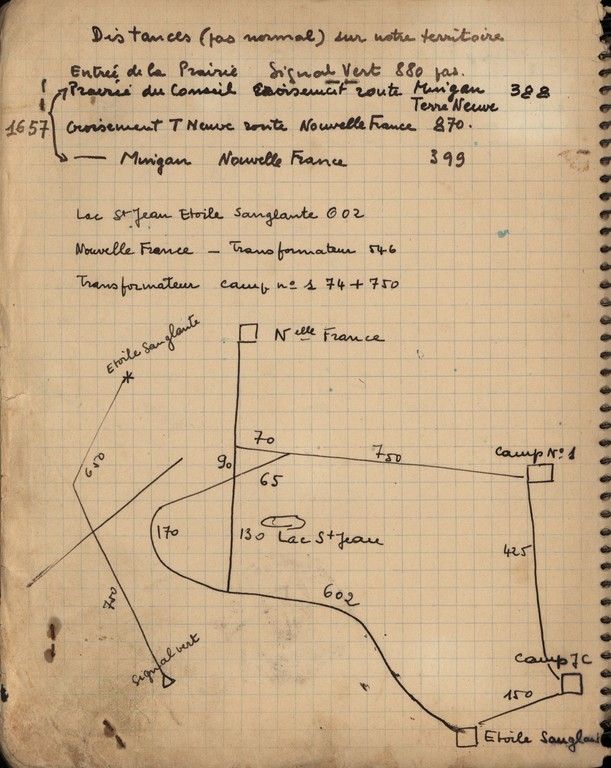 Distances (pas normal) sur notre territoire
Entrée de la Prairie Signal Vert 880 pas.
Prairie du Conseil Croisement route Minigan 388
Terre Neuve
1657
Croisement T Neuve route Nouvelle France 870.
— Minigan Nouvelle France 399
Lac St Jean Etoile Sanglante 602
Nouvelle France — Transformateur 546
Transformateur camp no 1 74 + 750
Etoile Sanglante
Nelle France
70
750
Camp No 1
90
65
650
170
130 Lac St Jean
425
700
602
Signal vert
Camp JC
150
Etoile Sanglan